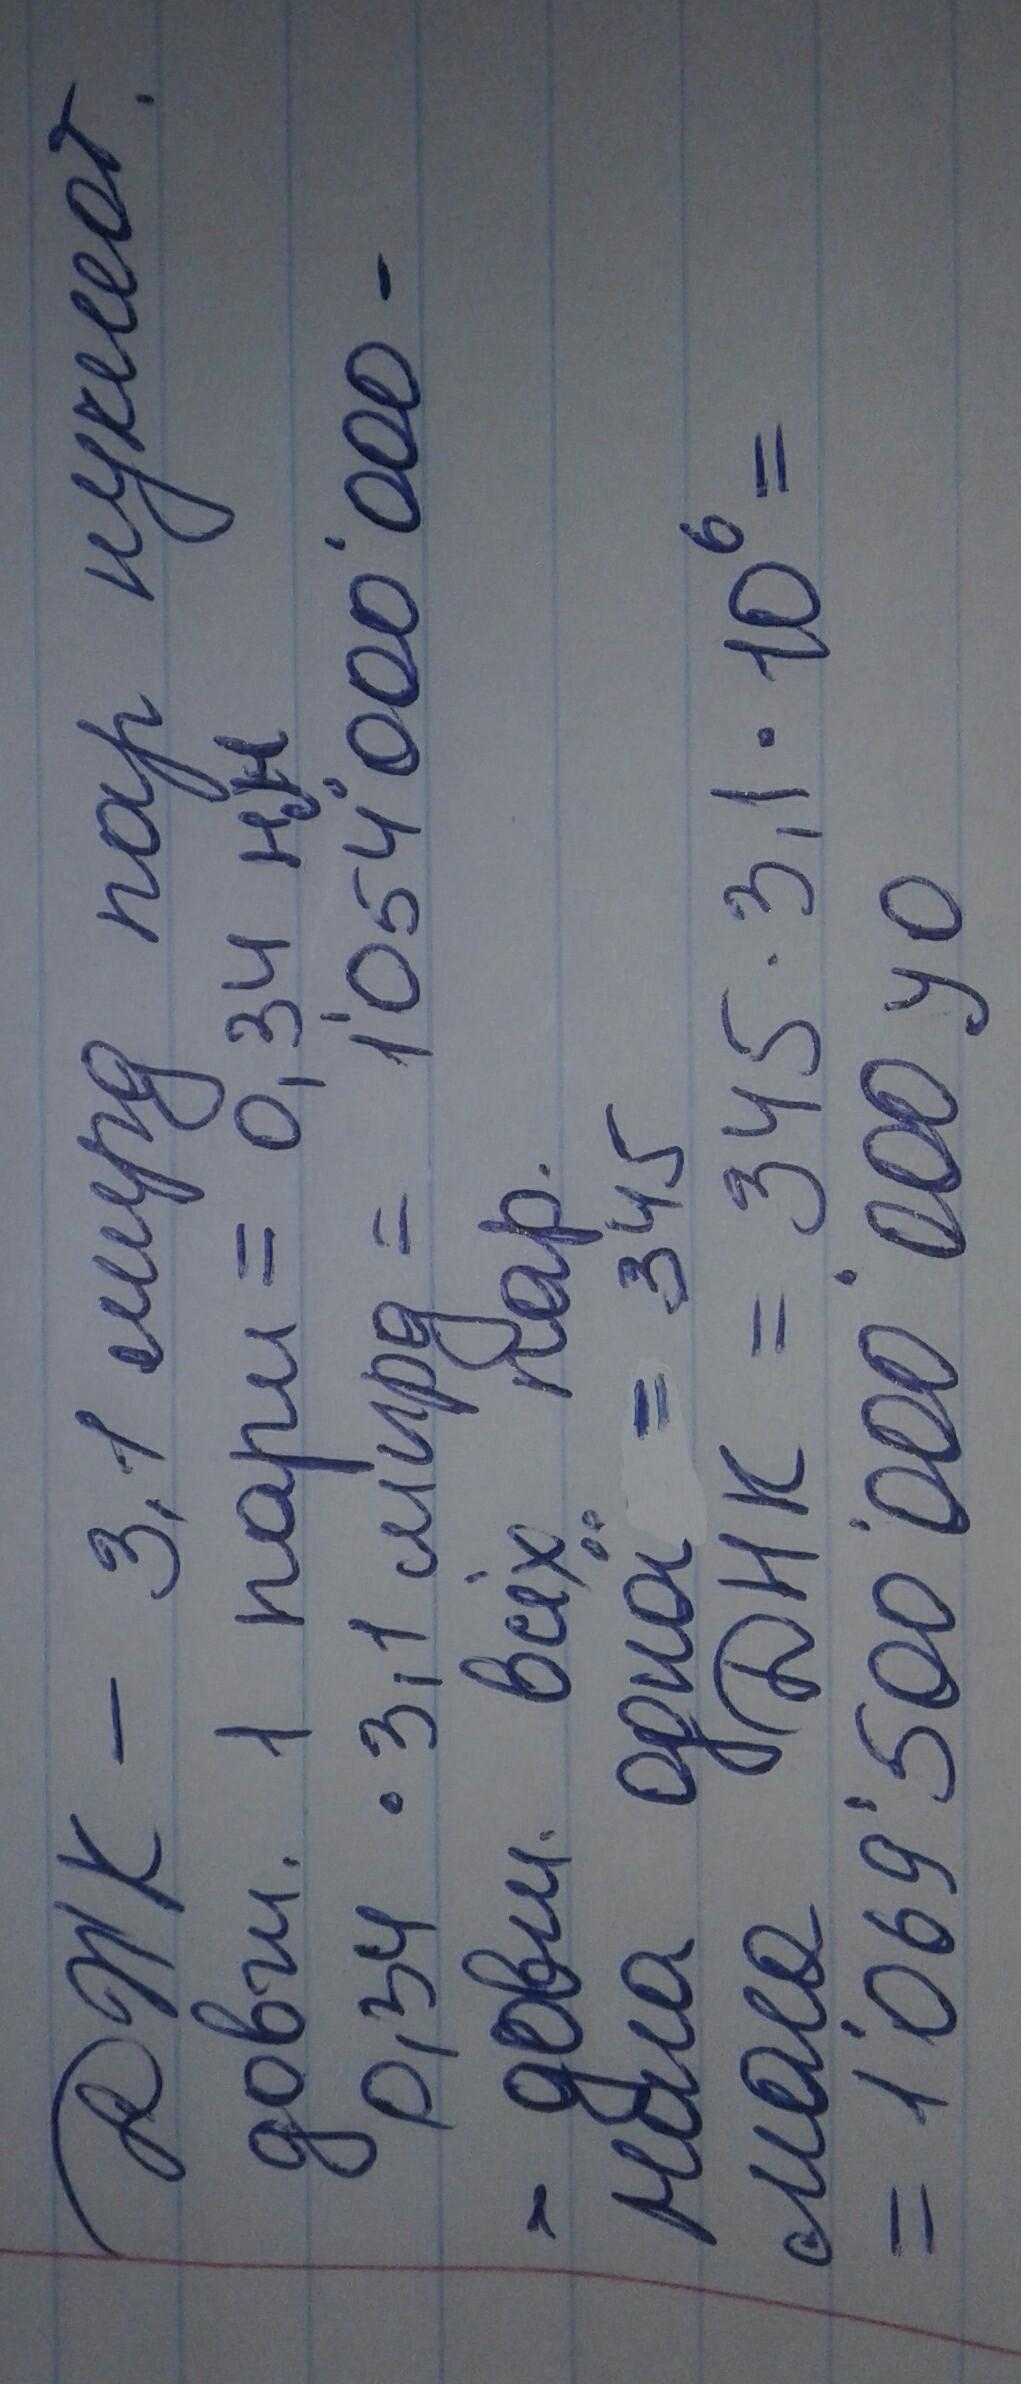 ДНК - 3,1 млрд пар нуклеот.
довж. 1 пари = 0,34 нм
0,34 • 3,1 млрд = 1'054'000'000 -
- довж. всіх пар.
маса одної = 345
маса ДНК = 345 · 3,1 · 10⁶ =
= 1'069'500'000'000 уо